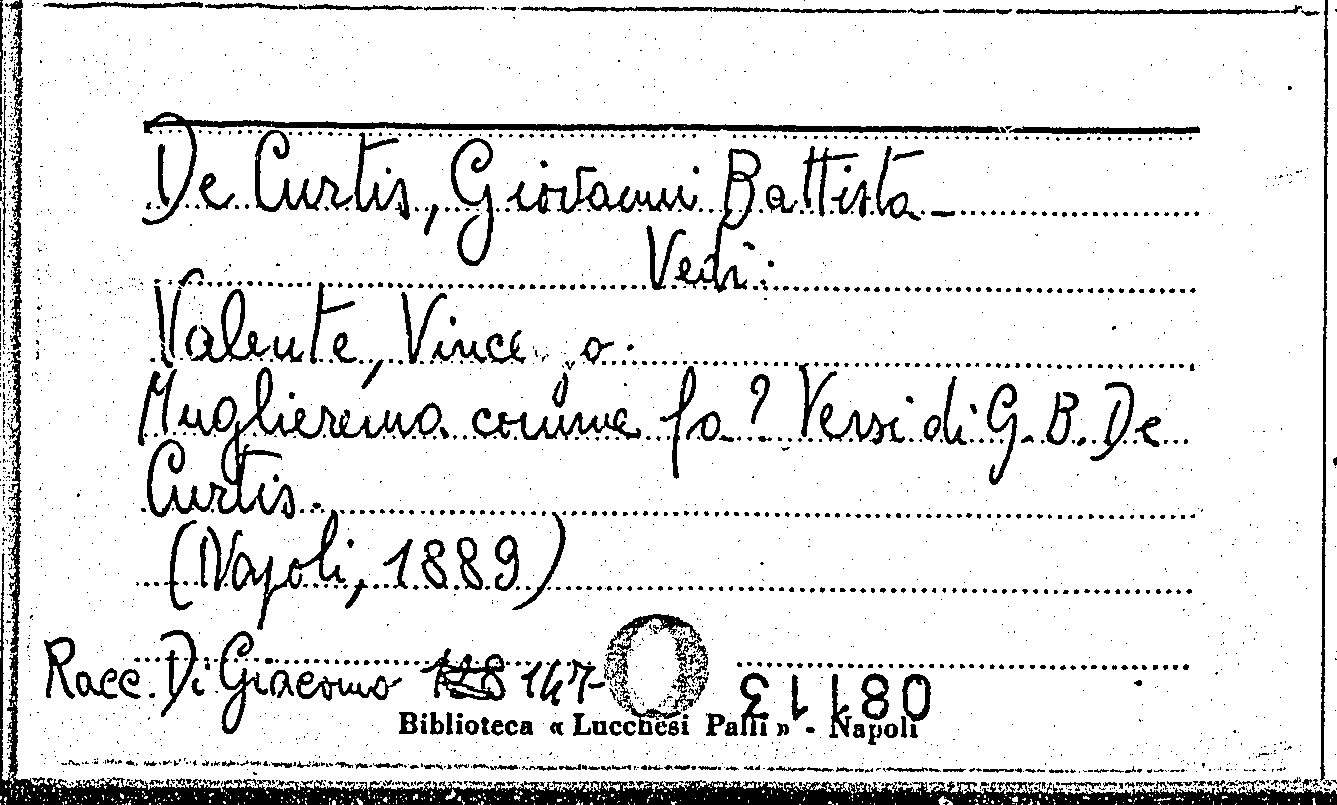 De Curtis, Giovanni Battista -
Vedi:
Valente, Vince zo.
Muglierema comme fa? Versi di G. B. De
Curtis.
(Napoli, 1889)
Racc. Di Giacomo 128 147
08113
Biblioteca « Lucchesi Palli » - Napoli